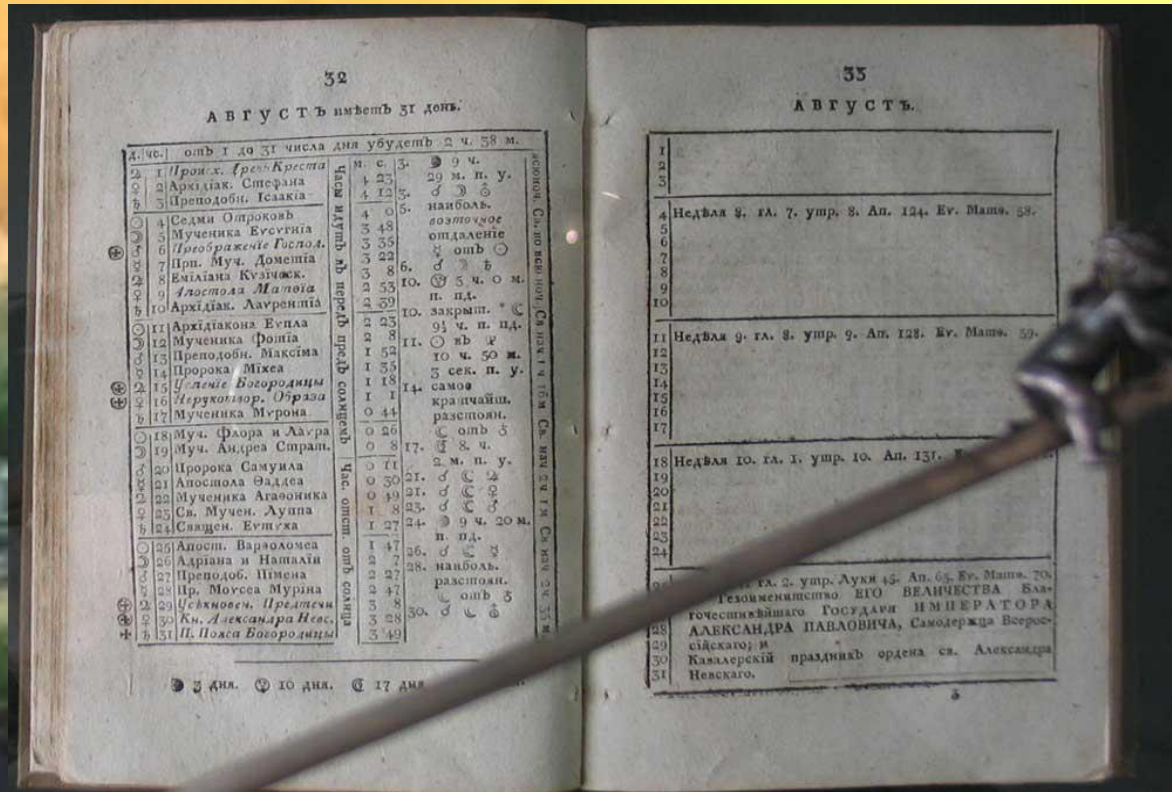 32
АВГУСТЪ имѣетъ 31 день.
Д. чс. отъ 1 до 31 числа дня убудетъ 2 ч. 38 м.
♃ 1 Происх. Древъ Креста
♀ 2 Архідіак. Стефана
♄ 3 Преподобн. Ісаакіа
☉ 4 Седми Отроковъ
☽ 5 Мученика Еѵсѵгніа
♂ 6 Преображеніе Господ.
☿ 7 Прп. Муч. Дометіа
♃ 8 Еміліана Кѵзіческ.
♀ 9 Апостола Матѳіа
♄ 10 Архідіак. Лаѵрентіа
☉ 11 Архідіакона Еѵпла
☽ 12 Мученика Фотіа
♂ 13 Преподобн. Максіма
☿ 14 Пророка Міхеа
♃ 15 Успеніе Богородицы
♀ 16 Нерукотвор. Образа
♄ 17 Мученика Мѵрона
☉ 18 Муч. Флора и Лаѵра
☽ 19 Муч. Андреа Страт.
♂ 20 Пророка Самуила
☿ 21 Апостола Ѳаддеа
♃ 22 Мученика Агаѳоника
♀ 23 Св. Мучен. Луппа
♄ 24 Священ. Еѵтѵха
☉ 25 Апост. Варѳоломеа
☽ 26 Адріана и Наталіи
♂ 27 Преподоб. Пімена
☿ 28 Пр. Моѵсеа Муріна
♃ 29 Усѣкновен. Предтечи
♀ 30 Кн. Александра Невс.
♄ 31 П. Пояса Богородицы
Часы идутъ въ передъ предъ солнцемъ
Час. отст. отъ солнца
м. с.
4 23
4 12
4 0
3 48
3 35
3 22
3 8
2 53
2 39
2 23
2 8
1 52
1 35
1 18
1 1
0 44
0 26
0 8
0 11
0 30
0 49
1 8
1 27
1 47
2 7
2 27
2 47
3 8
3 28
3 49
3. 9 ч.
29 м. п. у.
3. ☌ ☽ ♁
5. наиболь.
возточное
отдаленіе
☿ отъ ☉
6. ☌ ☽ ♄
10. 3 ч. 0 м.
п. пд.
10. закрыт. * ☾
9½ ч. п. пд.
11. ☉ въ
10 ч. 50 м.
3 сек. п. у.
14. самое
кратчайш.
разстоян.
☾ отъ ♁
17. 8. ч.
2 м. п. у.
21. ☌ ☾ ♃
21. ☌ ☾ ♀
23. ☌ ☾ ♂
24. 9 ч. 20 м.
п. пд.
26. ☌ ☾ ☿
28. наиболь.
разстоян.
☾ отъ ♁
30. ☌ ☾ ♁
3 дня. 10 дня. 17 дня
33
АВГУСТЪ.
1
2
3
4 Недѣля 8. гл. 7. утр. 8. Ап. 124. Еѵ. Матѳ. 58.
5
6
7
8
9
10
11 Недѣля 9. гл. 8. утр. 9. Ап. 128. Еѵ. Матѳ. 59.
12
13
14
15
16
17
18 Недѣля 10. гл. 1. утр. 10. Ап. 131.
19
20
21
22
23
24
гл. 2. утр. Луки 45. Ап. 65. Еѵ. Матѳ. 70.
Тезоименитство ЕГО ВЕЛИЧЕСТВА Бла-
гочестивѣйшаго ГОСУДАРЯ ИМПЕРАТОРА
28 АЛЕКСАНДРА ПАВЛОВИЧА, Самодержца Всерос-
29 сійскаго; и
30 Кавалерскій праздникъ ордена св. Александра
31 Невскаго.
3